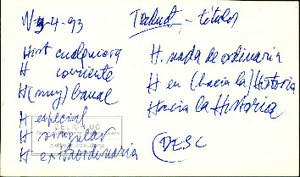 4-93
Traduct. - títulos
Hist cualquiera
H corriente
H (muy) banal
H especial
H singular
H extraordinaria
H. nada de ordinaria
H en (hacia la) Historia
Hacia la Historia
(DESC